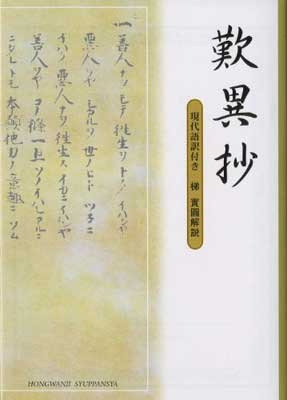 歎異抄
現代語訳付き 梯 實圓解説
一 善人ナヲモテ往生ヲトク イハンヤ
悪人ヲヤ シカルヲ 世ノヒト ツネニ
イハク 悪人ナヲ往生ス イカニイハンヤ
善人ヲヤ コノ條一旦ソノイハレアルニ
ニタレトモ 本願他力ノ意趣ニ ソム
HONGWANJI SYUPPANSYA